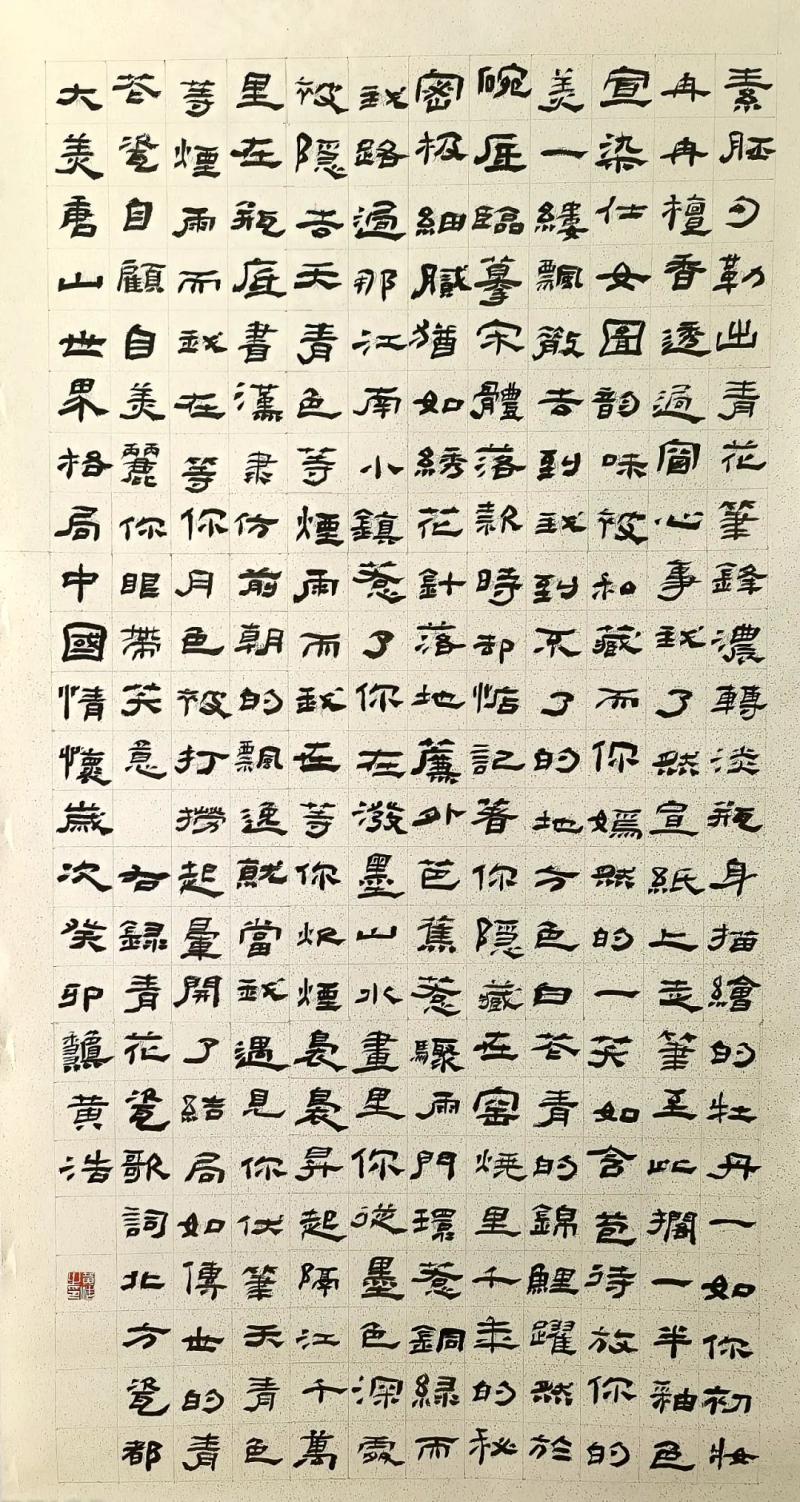 素胚勾勒出青花筆鋒濃轉淡瓶身描繪的牡丹一如你初妝
冉冉檀香透過窗心事我了然宣紙上走筆至此擱一半釉色
宣染仕女圖韵味被私藏而你嫣然的一笑如含苞待放你的
美一縷飄散去到我到不了的地方色白花青的錦鯉躍然於
碗底臨摹宋體落款時却惦記着你隱藏在窑燒里千年的秘
密极細膩猶如綉花針落地簾外芭蕉惹驟雨門環惹銅緑而
我路過那江南小鎮惹了你在潑墨山水畫里你從墨色深處
被隱去天青色等煙雨而我在等你炊煙裊裊昇起隔江千萬
里在瓶底書漢隸仿前朝的飄逸就當我遇見你伏筆天青色
等煙雨而我在等你月色被打撈起暈開了結局如傳世的青
花瓷自顧自美麗你眼帶笑意 右録青花瓷歌詞北方瓷都
大美唐山世界格局中國情懷歲次癸卯黄浩